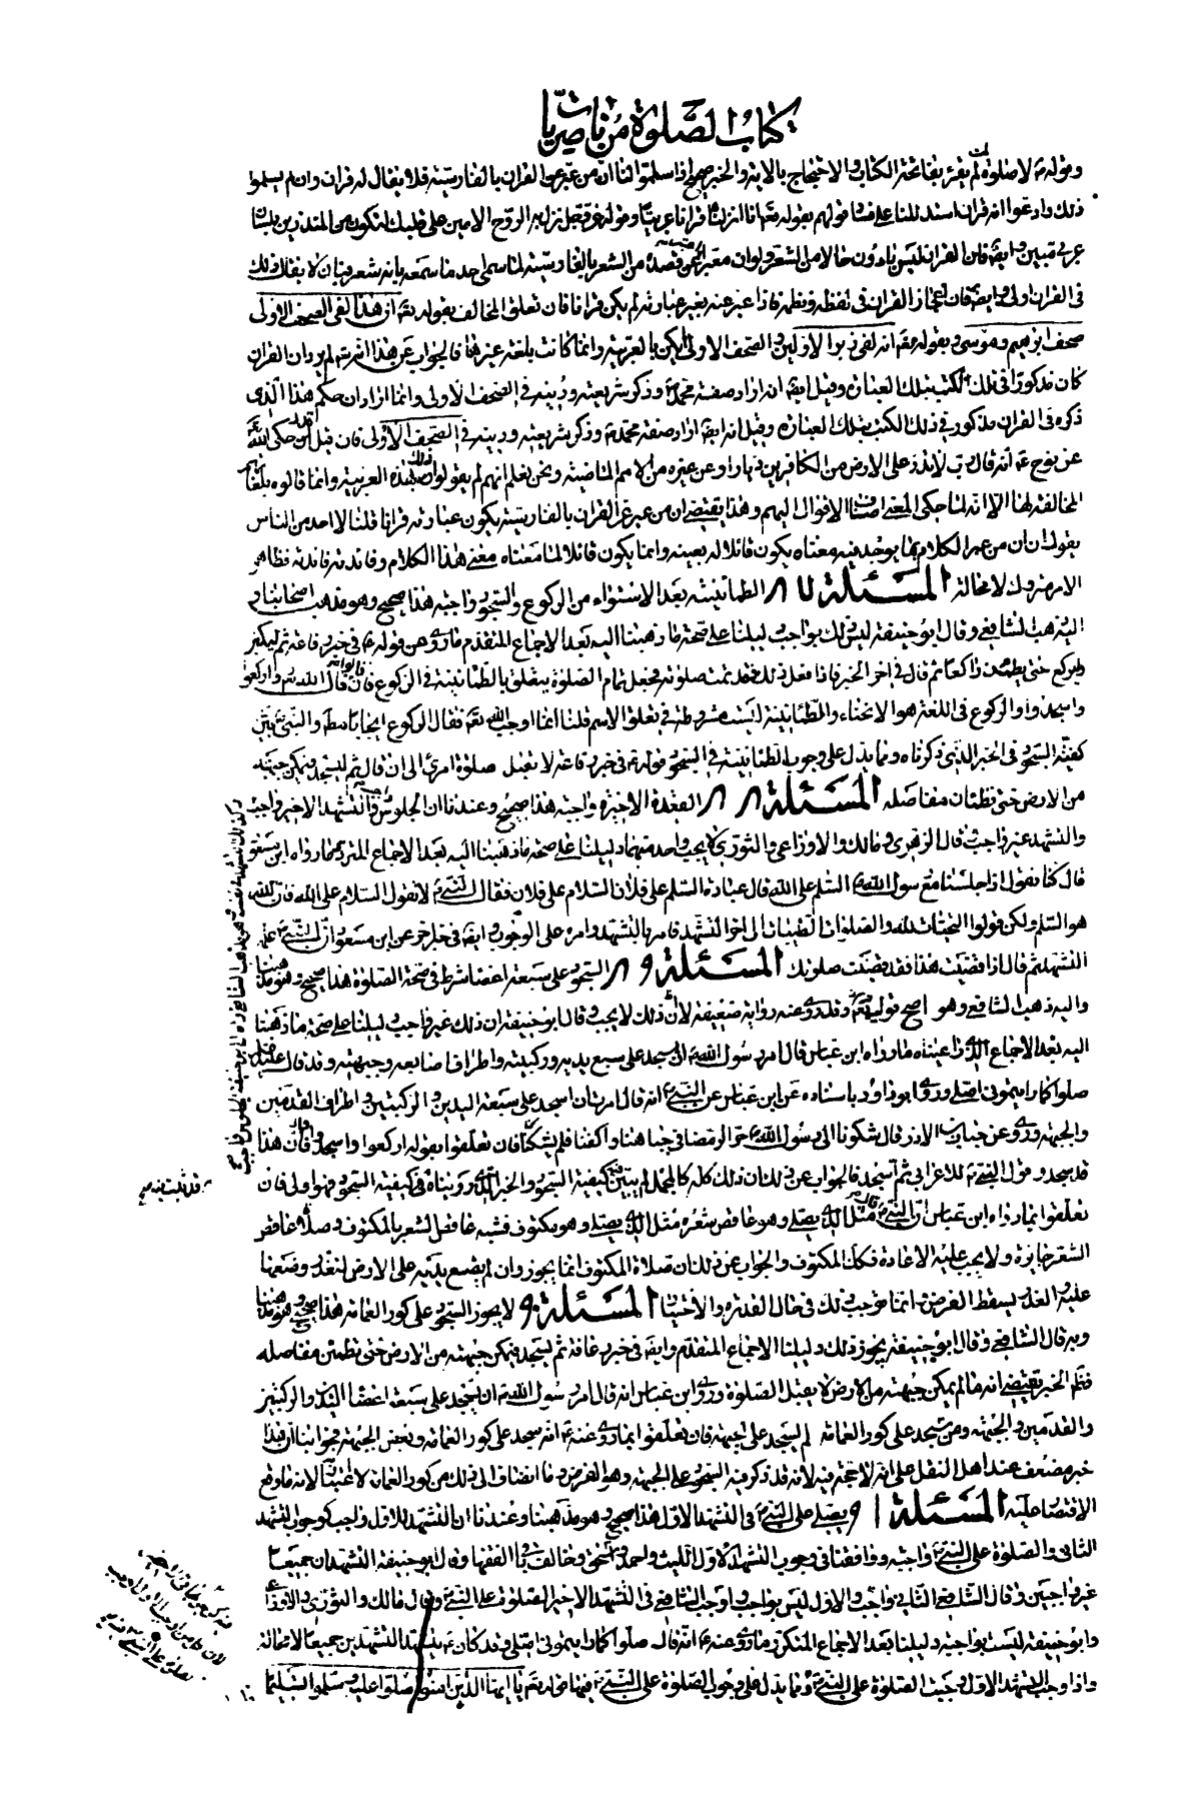 كتاب الصلوة من ناصريات
وقوله ع لا صلوة لمن لم يقرء بفاتحة الكتاب والاحتجاج بالاية والخبر صحيح اذا سلموا لنا ان من عبر عن القران بالفارسية فلا يقال له قران وان لم يسلموا
ذلك وادعوا انه قران استدللنا على فساد قولهم بقوله تعم انا انزلناه قرانا عربيا وقوله عز وجل نزل به الروح الامين على قلبك لتكون من المنذرين بلسان
عربي مبين وايضا فان القران ليس بادون حالا من الشعر ولو ان معبرا عن قصيدة من الشعر بالفارسية لما سمى احد ما سمعه بانه شعر فبان لا يقال ذلك
في القران اولى وايضا فان اعجاز القران في لفظه ونظمه فاذا عبر عنه بغير عبارته لم يكن قرانا فان تعلق المخالف بقوله تعم ان هذا لفي الصحف الاولى
صحف ابرهيم وموسى وبقوله تعم انه لفي زبر الاولين والصحف الاولى لم يكن بالعربية وانما كانت بلغة غيرها فالجواب عن هذا انه تعم لم يرد ان القران
كان مذكورا في تلك الكتب بتلك العبارة وقيل ايضا انه اراد صفة محمد ص وذكر شريعته ودينه في الصحف الاولى وانما اراد ان حكم هذا الذي
ذكره في القران مذكور في ذلك الكتب بتلك العبارة وقيل انه ايضا اراد صفة محمد ص وذكر شريعته ودينه في الصحف الاولى فان قيل اليس قد حكى الله
عن نوح ع انه قال رب لا تذر على الارض من الكافرين ديارا وعن غيره من الامم الماضية ونحن نعلم انهم لم يقولوا ذلك بهذه العربية وانما قالوه بلغاتهم
المخالفة لها الا انه لما حكى المعنى اضاف الاقوال اليهم وهذا يقتضي ان من عبر عن القران بالفارسية يكون عبارته قرانا قلنا لا احد من الناس
يقول ان من عبر الكلام بما يوجد فيه معناه يكون قائلا له بعينه وانما يكون قائلا لما معناه معنى هذا الكلام وفائدته فائدته فظاهر
الامر متروك لا محالة المسئلة ٨٧ الطمانينة بعد الاستواء من الركوع والسجود واجبة هذا صحيح وهو مذهب اصحابنا و
اليه ذهب الشافعي وقال ابو حنيفة ليس ذلك بواجب دليلنا على صحة ما ذهبنا اليه بعد الاجماع المتقدم ما روي عن قوله ع في خبر رفاعة ثم ليكبر
وليركع حتى يطمئن راكعا ثم قال في اخر الخبر فاذا فعل ذلك فقد تمت صلوته فجعل تمام الصلوة يتعلق بالطمانينة في الركوع فان قالوا قال الله تعم واركعوا
واسجدوا والركوع في اللغة هو الانحناء والطمانينة ليست مشروطة في تعلق الاسم قلنا انما اوجب الله تعم فقال الركوع ايجابا بسط والنبي ص بين
كيفية السجود في الخبر الذي ذكرناه ومما يدل على وجوب الطمانينة في السجود قوله ع في خبر رفاعة لا تقبل صلوة امرئ الى ان قال ثم ليسجد فيمكن جبهته
من الارض حتى تطمئن مفاصله المسئلة ٨٨ القعدة الاخيرة واجبة هذا صحيح وعندنا ان الجلوس في التشهد الاخير واجب
والتشهد غير واجب قال الزهري ومالك والاوزاعي والثوري لا يجب واحد منهما دليلنا على صحة ما ذهبنا اليه بعد الاجماع المتردد ما رواه ابن مسعود
قال كنا نقول اذا جلسنا مع رسول الله ص السلم على الله قبل عباده السلم على فلان السلام على فلان فقال النبي ص لا تقولوا السلام على الله فان الله
هو السلم ولكن قولوا التحيات لله والصلوات الطيبات الى اخر التشهد فامر بالتشهد وامره على الوجوب وايضا في خبر اخر عن ابن مسعود ان النبي ص علمه
التشهد ثم قال اذا قضيت هذا فقد قضيت صلوتك المسئلة ٨٩ السجود على سبعة اعضاء شرط في صحة الصلوة هذا صحيح وهو مذهبنا
واليه ذهب الشافعي وهو اصح قوليه وقد روي عنه رواية ضعيفة لان ذلك لا يجب وقال ابو حنيفة ان ذلك غير واجب دليلنا على صحة ما ذهبنا
اليه بعد الاجماع الذي راعيناه ما رواه ابن عباس قال امر رسول الله ص ان يسجد على سبع يديه وركبتيه واطراف اصابعه وجبهته وقد قال عليه السلم
صلوا كما رايتموني اصلي وروى ابو داود باسناده عن ابن عباس عن النبي ص انه قال امرت ان اسجد على سبعة اليدين والركبتين واطراف القدمين
والجبهة وروي عن خباب بن الارت قال شكونا الى رسول الله ص حر الرمضاء في جباهنا واكفنا فلم يشكنا فان تعلقوا بقوله اركعوا واسجدوا قالوا فان هذا
قد سجد وقول النبي ص للاعرابي ثم تسجد فالجواب عن ذلك ان ذلك كله كالمجمل لم يبين كيفية السجود والخبر الذي رويناه في كيفية السجود فهو اولى فان
تعلقوا بما رواه ابن عباس ان النبي ص قال مثل الذي يصلي وهو عاقص شعره مثل الذي يصلي وهو مكتوف فشبه عاقص الشعر بالمكتوف وصلوة عاقص
الشعر جايزة ولا يجب عليه الاعادة فكذلك المكتوف والجواب عن ذلك ان صلاة المكتوف انما يجوز وان لم يضع يديه على الارض لتعذر وضعهما
عليه والعذر يسقط الفرض وانما نوجب ذلك في حال القدرة والاختيار المسئلة ٩٠ لا يجوز السجود على كور العمامة هذا صحيح وهو مذهبنا
وبه قال الشافعي وقال ابو حنيفة يجوز ذلك دليلنا الاجماع المتقدم وايضا في خبر رفاعة ثم يسجد فيمكن جبهته من الارض حتى تطمئن مفاصله
فتم الخبر يقتضي انه ما لم يمكن جبهته من الارض لا يقبل الصلوة وروى ابن عباس انه قال امر رسول الله ص ان يسجد على سبعة اعضاء اليدين والركبتين
والقدمين والجبهة ومن سجد على كور العمامة لم يسجد على الجبهة فان تعلقوا بما روي عنه ع انه سجد على كور العمامة وبعض الجبهة فجوابنا ان هذا
خبر مضعف عند اهل النقل على انه لا حجة فيه لانه قد ذكر فيه السجود على الجبهة وهو الغرض وما انضاف الى ذلك من كور العمامة لا اعتبار به لانه ما وقع
الاقتصار عليه المسئلة ٩١ ويصلي على النبي ص في التشهد الاول هذا صحيح وهو مذهبنا وعندنا ان التشهد الاول واجب كوجوب التشهد
الثاني والصلوة على النبي ص واجبة ووافقنا في وجوب التشهد الاول الليث واحمد واسحق وخالف باقي الفقهاء وقال ابو حنيفة التشهدان جميعا
غير واجبين وقال الشافعي الثاني واجب والاول ليس بواجب واوجب الشافعي في التشهد الاخير الصلوة على النبي ص وقال مالك والثوري والاوزاعي
وابو حنيفة ليست بواجبة دليلنا بعد الاجماع المتكرر ما روي عنه ع انه قال صلوا كما رايتموني اصلي وقد كان ع يتشهد التشهدين جميعا لا محالة
واذا وجب التشهد الاول وجبت الصلوة على النبي ص ومما يدل على وجوب الصلوة على النبي ص فيهما قوله تعم يا ايها الذين امنوا صلوا عليه وسلموا تسليما